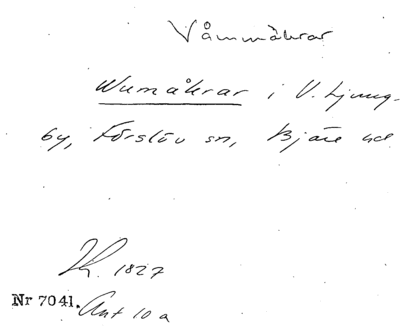 Våmmåkrar
Wumåkrar i V. Ljung-
by, Förslöv sn, Bjäre hd
K. 1827
Nr 7041. Akt 10 a